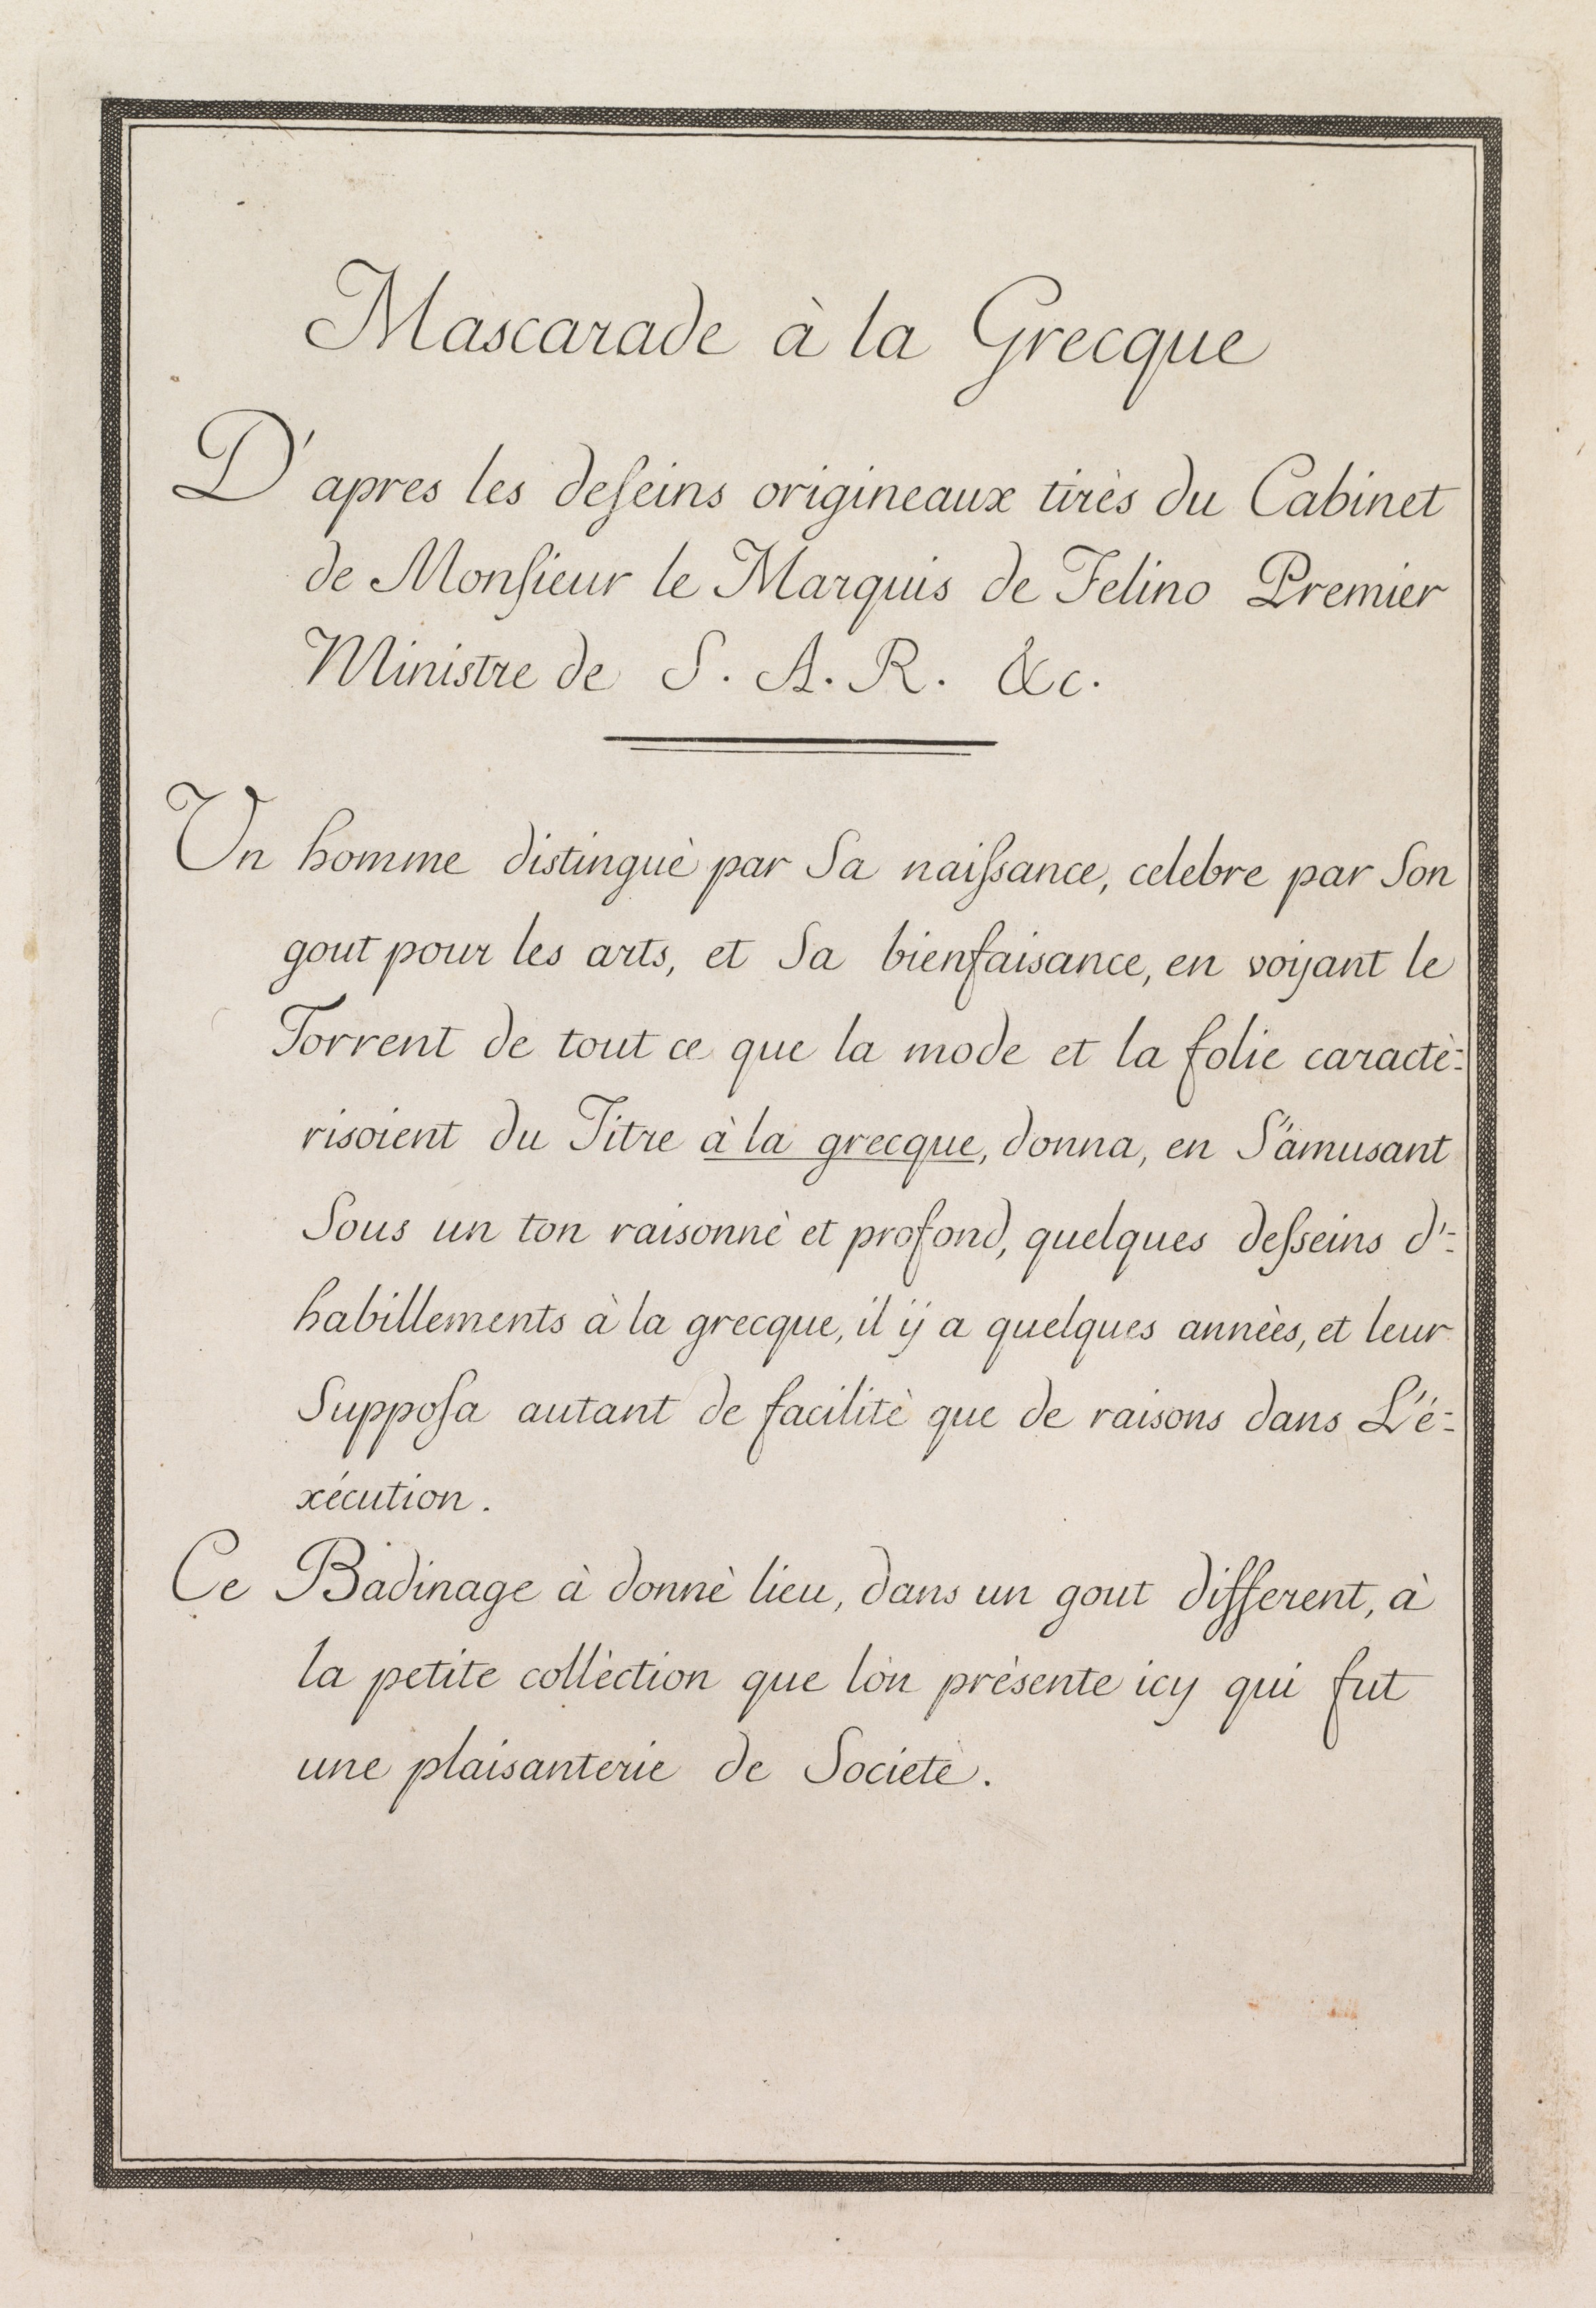 Mascarade à la Grecque
D'apres les deſeins origineaux tirès du Cabinet
de Monſieur le Marquis de Felino Premier
Ministre de S. A. R. &c.
Un homme distinguè par Sa naiſsance, celebre par Son
gout pour les arts, et Sa bienfaisance, en voyant le
Torrent de tout ce que la mode et la folie caractè=
risoient du Titre à la grecque, donna, en S'amusant
Sous un ton raisonnè et profond, quelques deſseins d'=
habillements à la grecque, il ÿ a quelques annèes, et leur
Suppoſa autant de facilitè que de raisons dans L'é=
xécution.
Ce Badinage à donnè lieu, dans un gout different, à
la petite collèction que lòn prèsente icy qui fut
une plaisanterie de Societè.